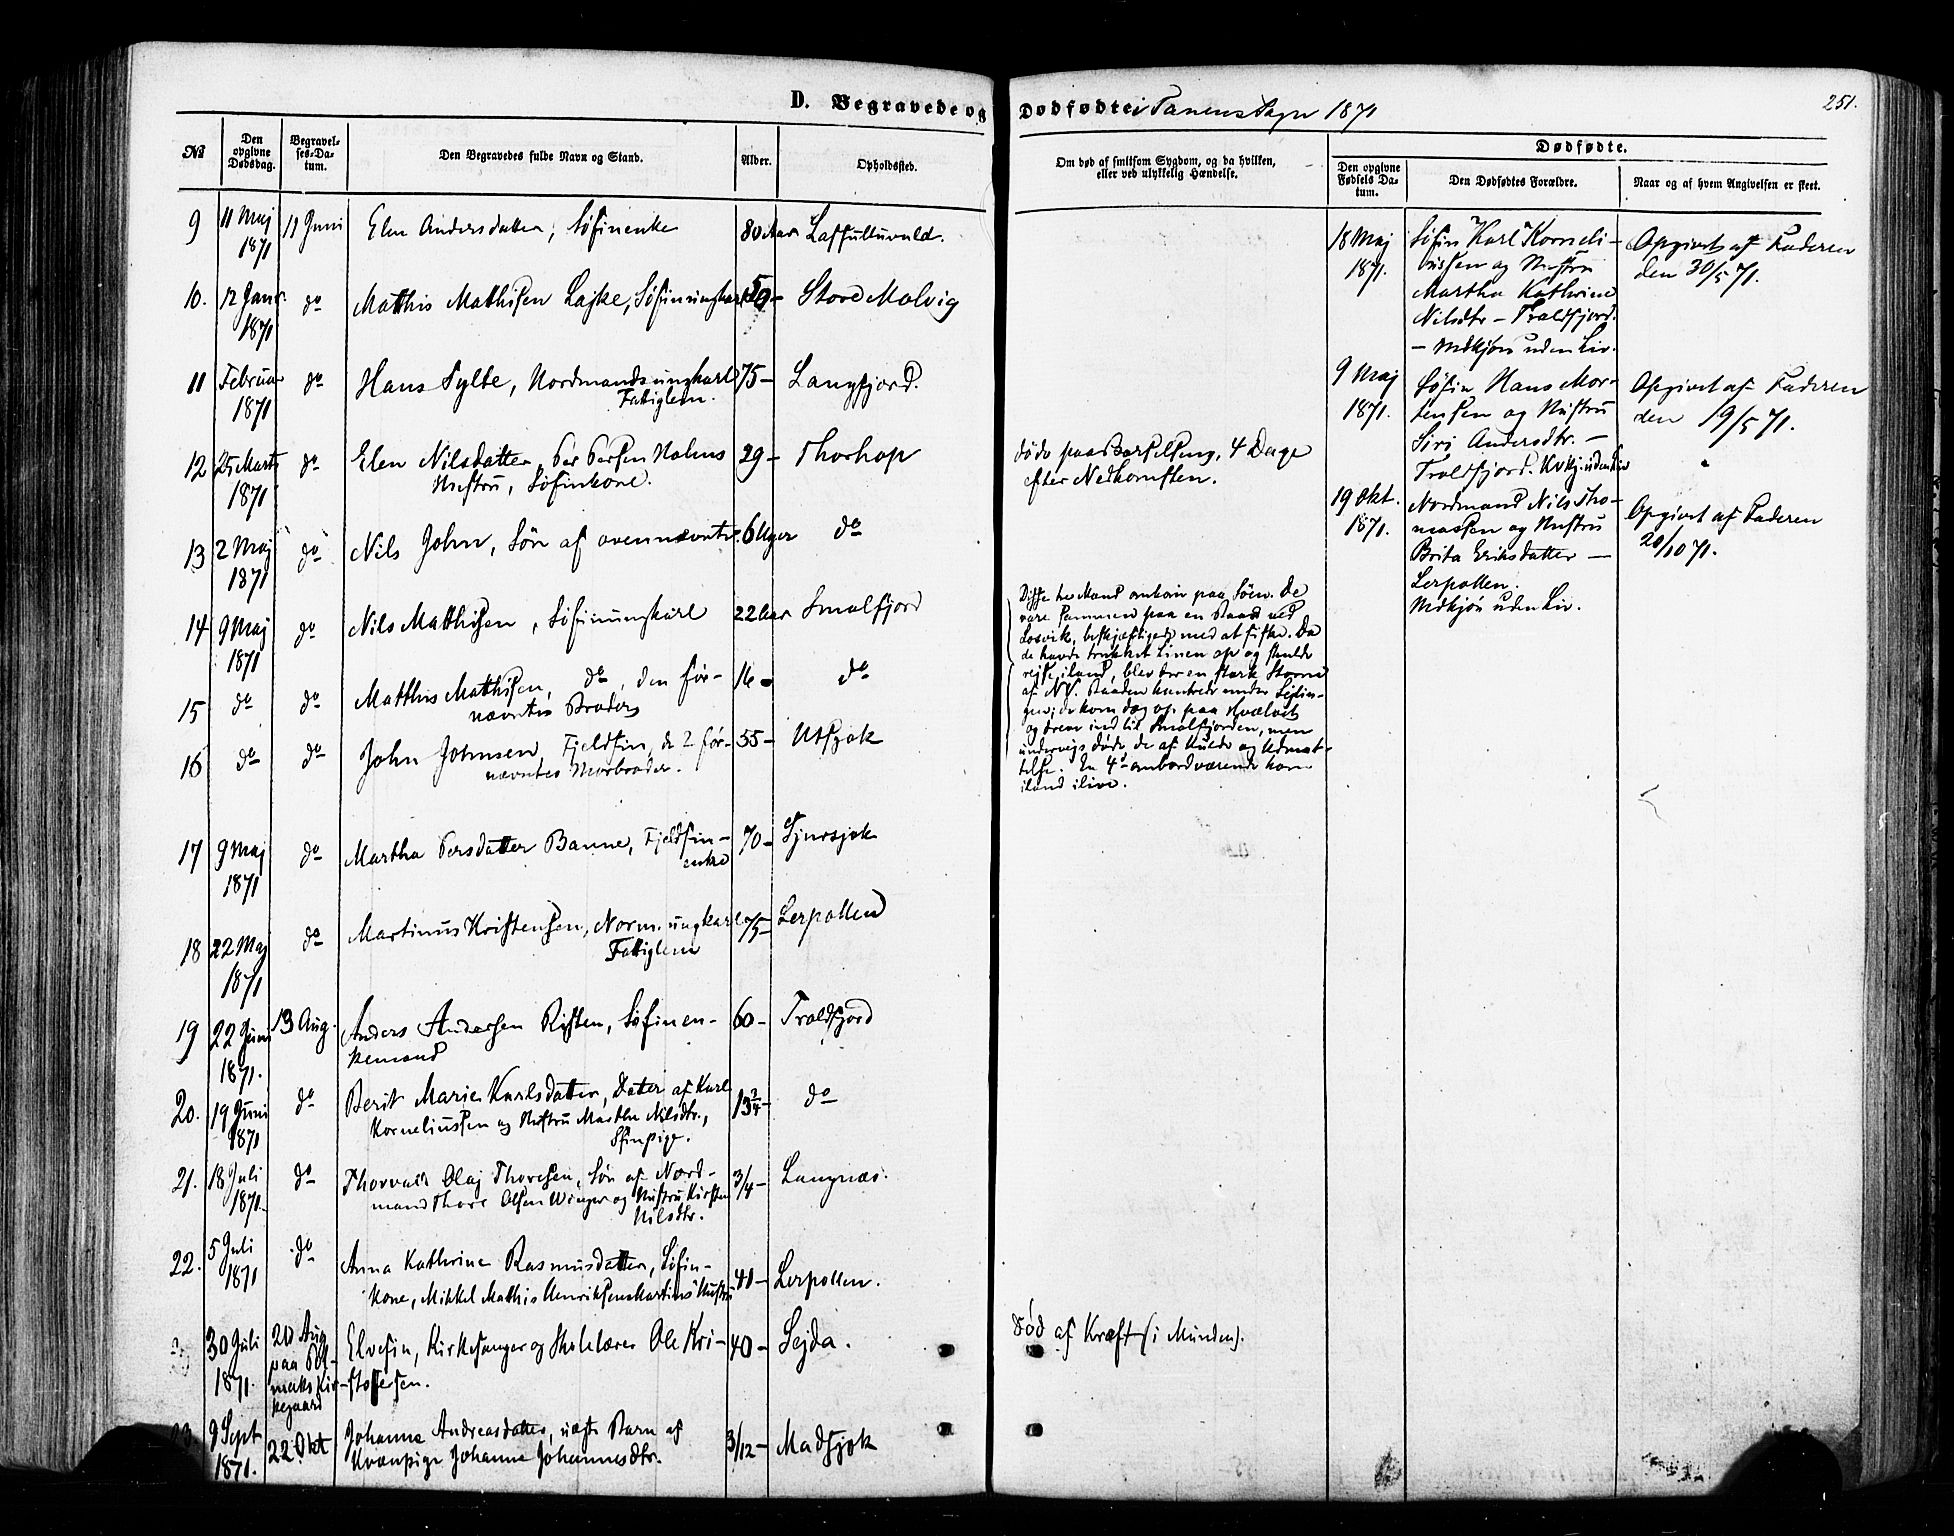 D. Begravede og Dødfødte i Tanens Sogn 1871
251.
№
Den opgivne Dødsdag.
Begravelses-Datum.
Den Begravedes fulde Navn og Stand.
Alder.
Opholdssted.
Om død af smitsom Sygdom, og da hvilken, eller ved ulykkelig Hændelse.
Dødfødte.
Den opgivne Fødsels Datum.
Den Dødfødtes Forældre.
Naar og af hvem Angivelsen er skeet.
9 11 Maj 1871 11 Juni Elen Andersdatter, Søfinenke 80 Aar
10. 12 Janr. 1871 do Matthis Mathisen Lajke, Søfinungkarl 59 - Store Molvig
11 Februar 1871 do Hans Sylte, Nordmandsungkarl 75 - Langfjord.
Fattiglem.
12 25 Marts 1871 do Elen Nilsdatter, Per Persen Holms 29 - Thorhop
Hustru, Søfinkone.
døde paa Barselseng, 4 Dage
efter Nedkomsten.
13 2 Maj 1871 do Nils John, Søn af ovennævnte. 6 Uger do
14 9 Maj 1871 do Nils Matthisen, Søfinungkarl 22 Aar Smalfjord
15 do do Matthis Matthisen, do, den før- 16 - do
nævntes Broder
16 do do John Johnsen, Fjeldfin, de 2 før- 55 - Utsjok
nævntes Morbroder.
Disse tre Mand omkom paa Søen. De
vare sammen paa en Baad ved
Losvik, beskjæftigede med at fiske. Da
de havde trukket Linen op og skulde
rejse iland, blev der en stærk Storm
af NV. Baaden kantrede under Sejlin-
gen; de kom dog op paa Hvælvet
og drev ind til Smalfjorden, men
underveis døde de af Kulde og Udmat-
telse. En 4de ombordværende kom
iland ilive.
17 9 Maj 1871 do Martha Persdatter Banne, Fjeldfin- 70 -
enke
18 22 Maj 1871 do Martinus Kristensen, Norm. ungkarl 75 - Lerpollen
Fattiglem
19 22 Juni 1871. 13 Aug. Anders Andersen Risten, Søfinen- 60 - Troldfjord
kemand
20. 19 Juni 1871 do Berit Marie Karlsdatter, Datter af Karl 13 3/4 - do
Korneliussen og Hustru Martha Nilsdtr.,
Sfinpige.
21. 18 Juli 1871. do Thorvald Olaj Thoresen, Søn af Nord- 3/4 - Langnæs.
mand Thore Olsen Winger og Hustru Kirsten
Nilsdtr.
22. 5 Juli 1871 do Anna Kathrine Rasmusdatter, Søfin- 41 - Lerpollen.
kone, Mikkel Mathis Henriksens Hustru
30 Juli 1871. 20 Aug paa Pol-
maks Kir-
kegaard
Elvefin, Kirkesanger og Skolelærer Ole Kri- 40 - Sejda.
stofersen.
Død af Kræft (i Munden).
23. 9 Sept 1871. 22 Okt Johanna Andreasdatter, uægte Barn af 3/12 - Madsjok
Kvænpige Johanna Johannesdtr.
18 Maj 1871.
Søfin Karl Korneli-
ussen og Hustru
Martha Kathrine
Nilsdtr - Troldfjord.
- Mdkjøn uden Liv.
Opgivet af Faderen
den 30/5 71.
9 Maj 1871.
Søfin Hans Mor-
tensen og Hustru
Siri Andersdtr. -
Troldfjord. Kvkj. uden Liv
Opgivet af Faderen
den 19/5 71.
19 Okt. 1871.
Nordmand Nils Tho-
massen og Hustru
Brita Eriksdatter -
Lerpollen.
Mdkjøn uden Liv.
Opgivet af Faderen
20/10 71.